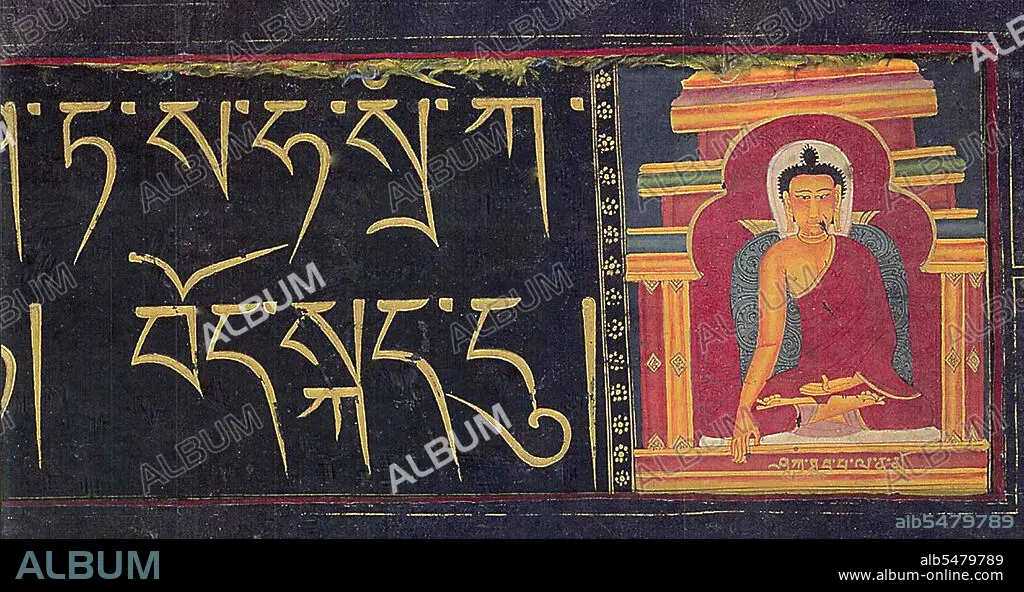 ཏ་ས་ཧ་སྲི་ཀ་
། བོད་སྐད་དུ །
ALBUM
alb5479789
ALBUM
alb5479789
www.album-online.com